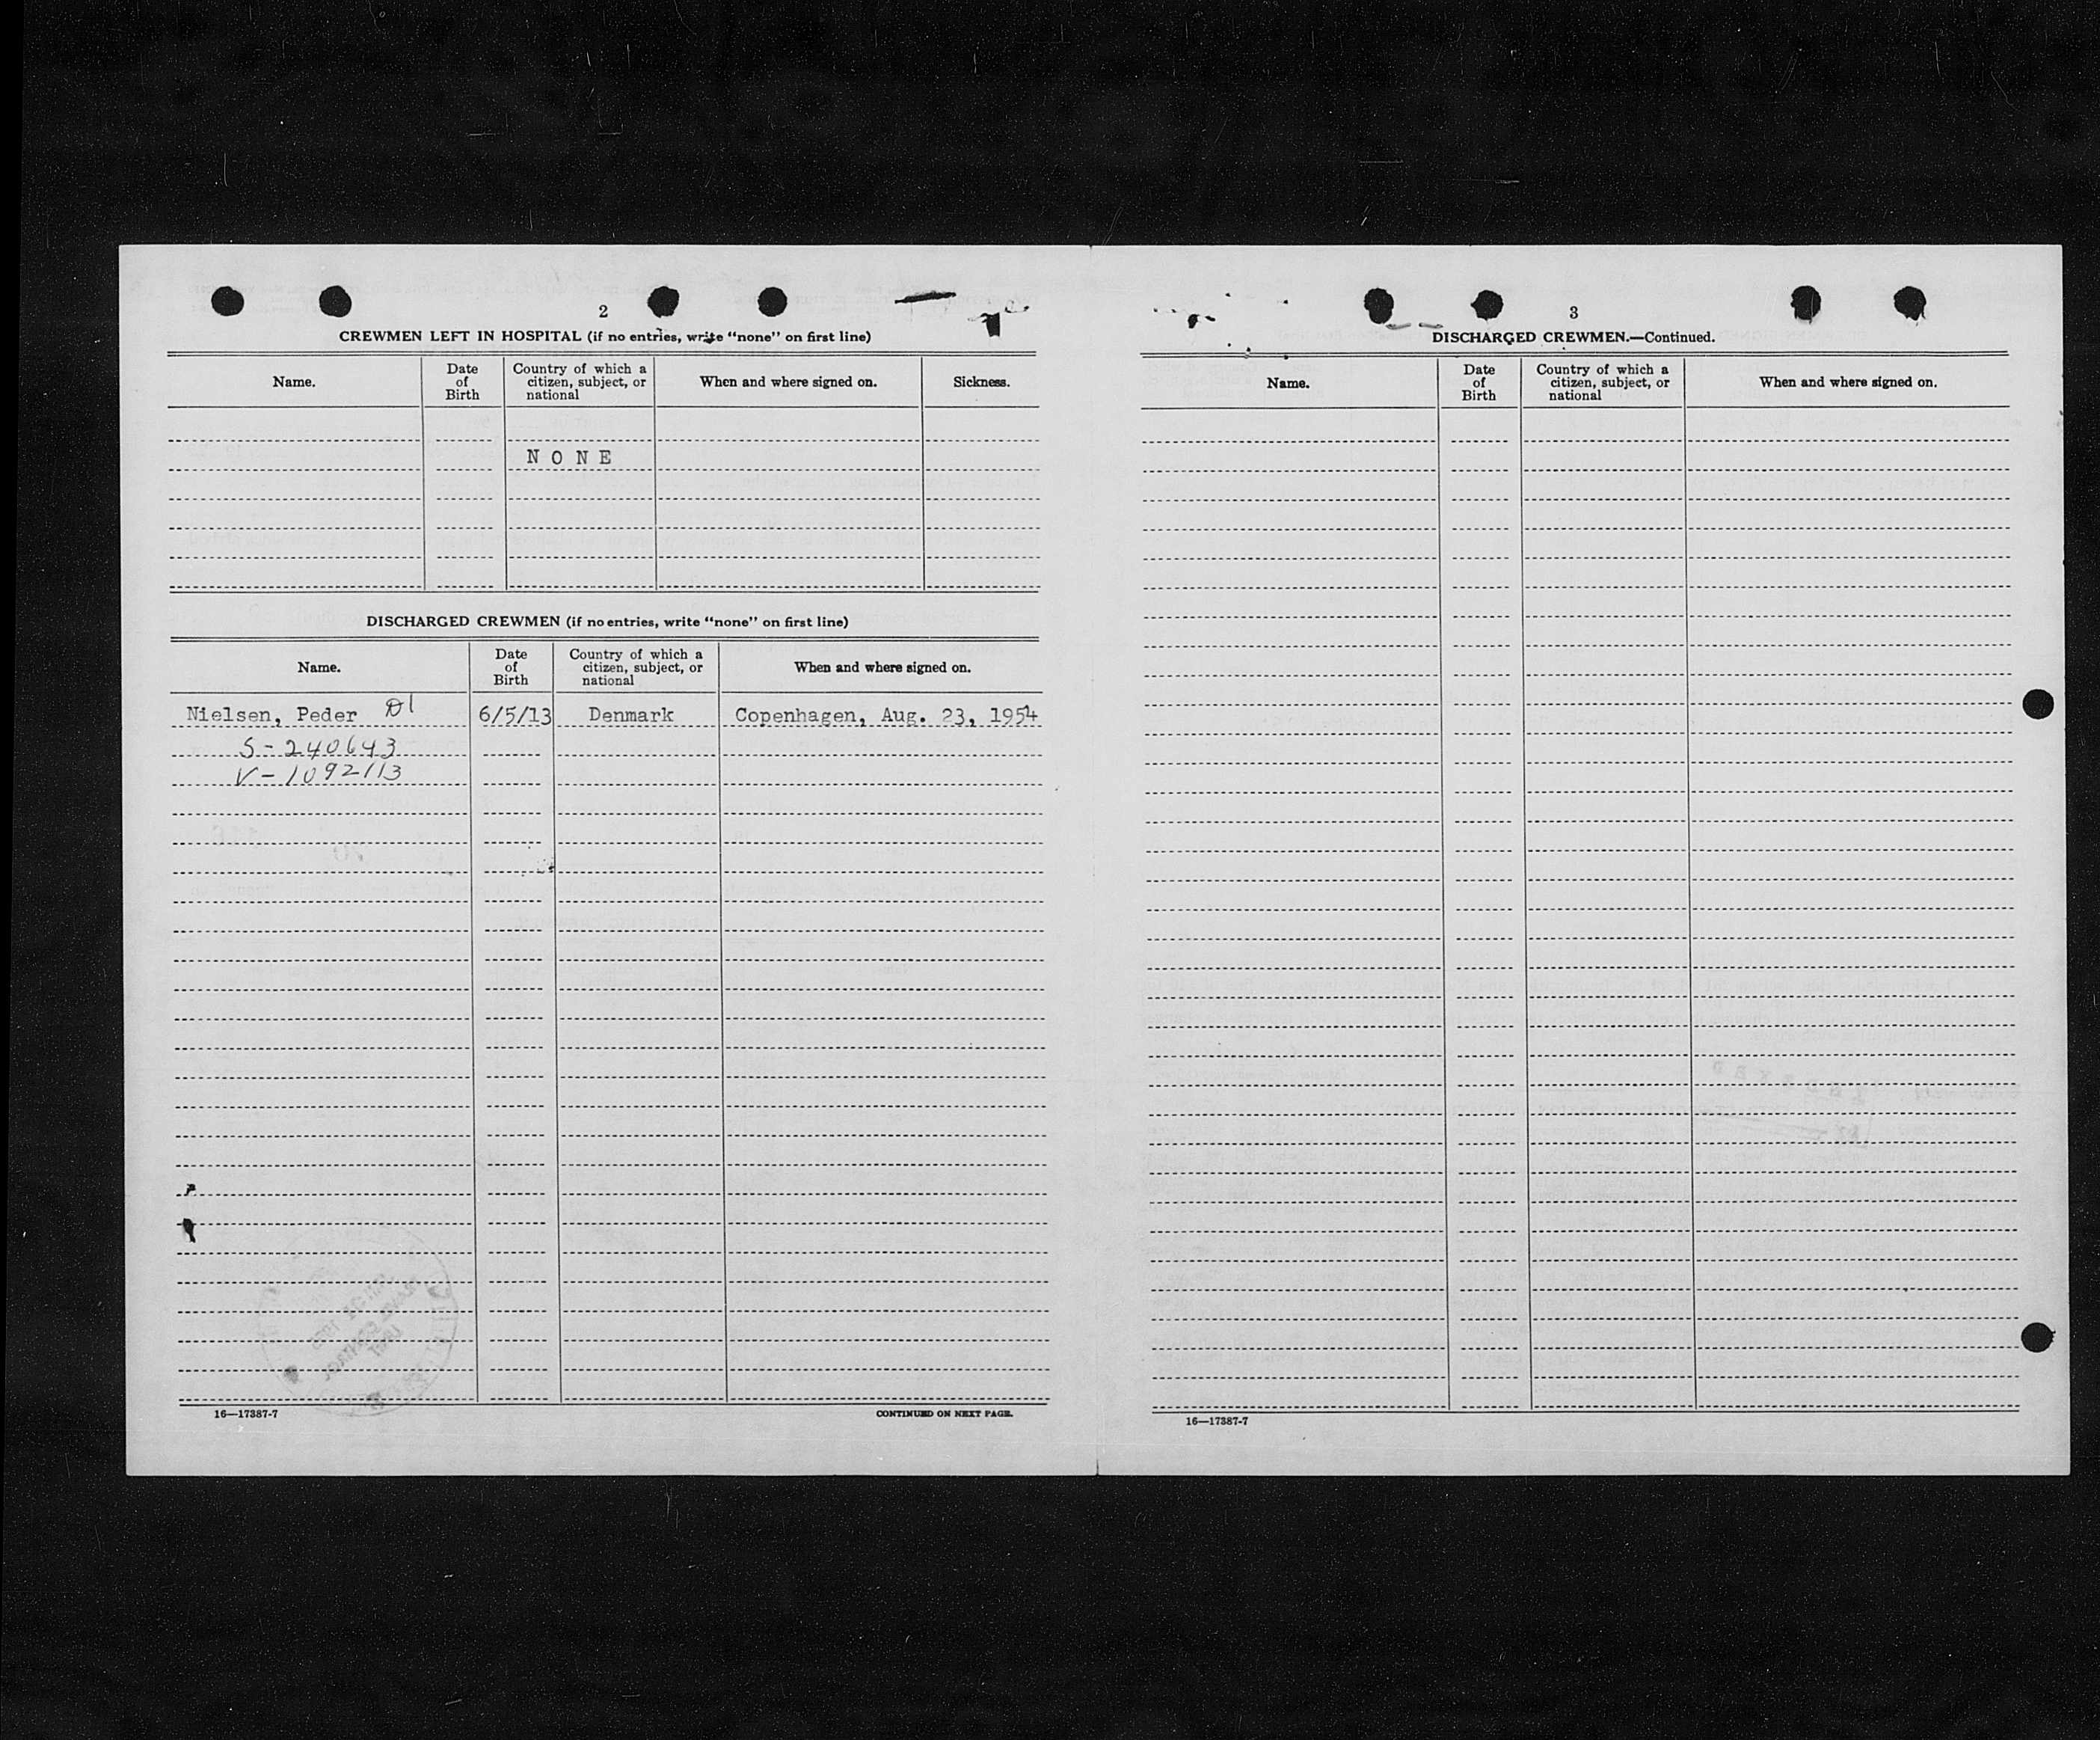 2
CREWMEN LEFT IN HOSPITAL (if no entries, write “none” on first line)
Name.
Date of Birth
Country of which a citizen, subject, or national
When and where signed on.
Sickness.
N O N E
DISCHARGED CREWMEN (if no entries, write “none” on first line)
Name.
Date of Birth
Country of which a citizen, subject, or national
When and where signed on.
Nielsen, Peder D1 6/5/13 Denmark Copenhagen, Aug. 23, 1954
S-240643
V-1092113
16—17387-7
CONTINUED ON NEXT PAGE.
3
DISCHARGED CREWMEN.—Continued.
Name.
Date of Birth
Country of which a citizen, subject, or national
When and where signed on.
16—17387-7